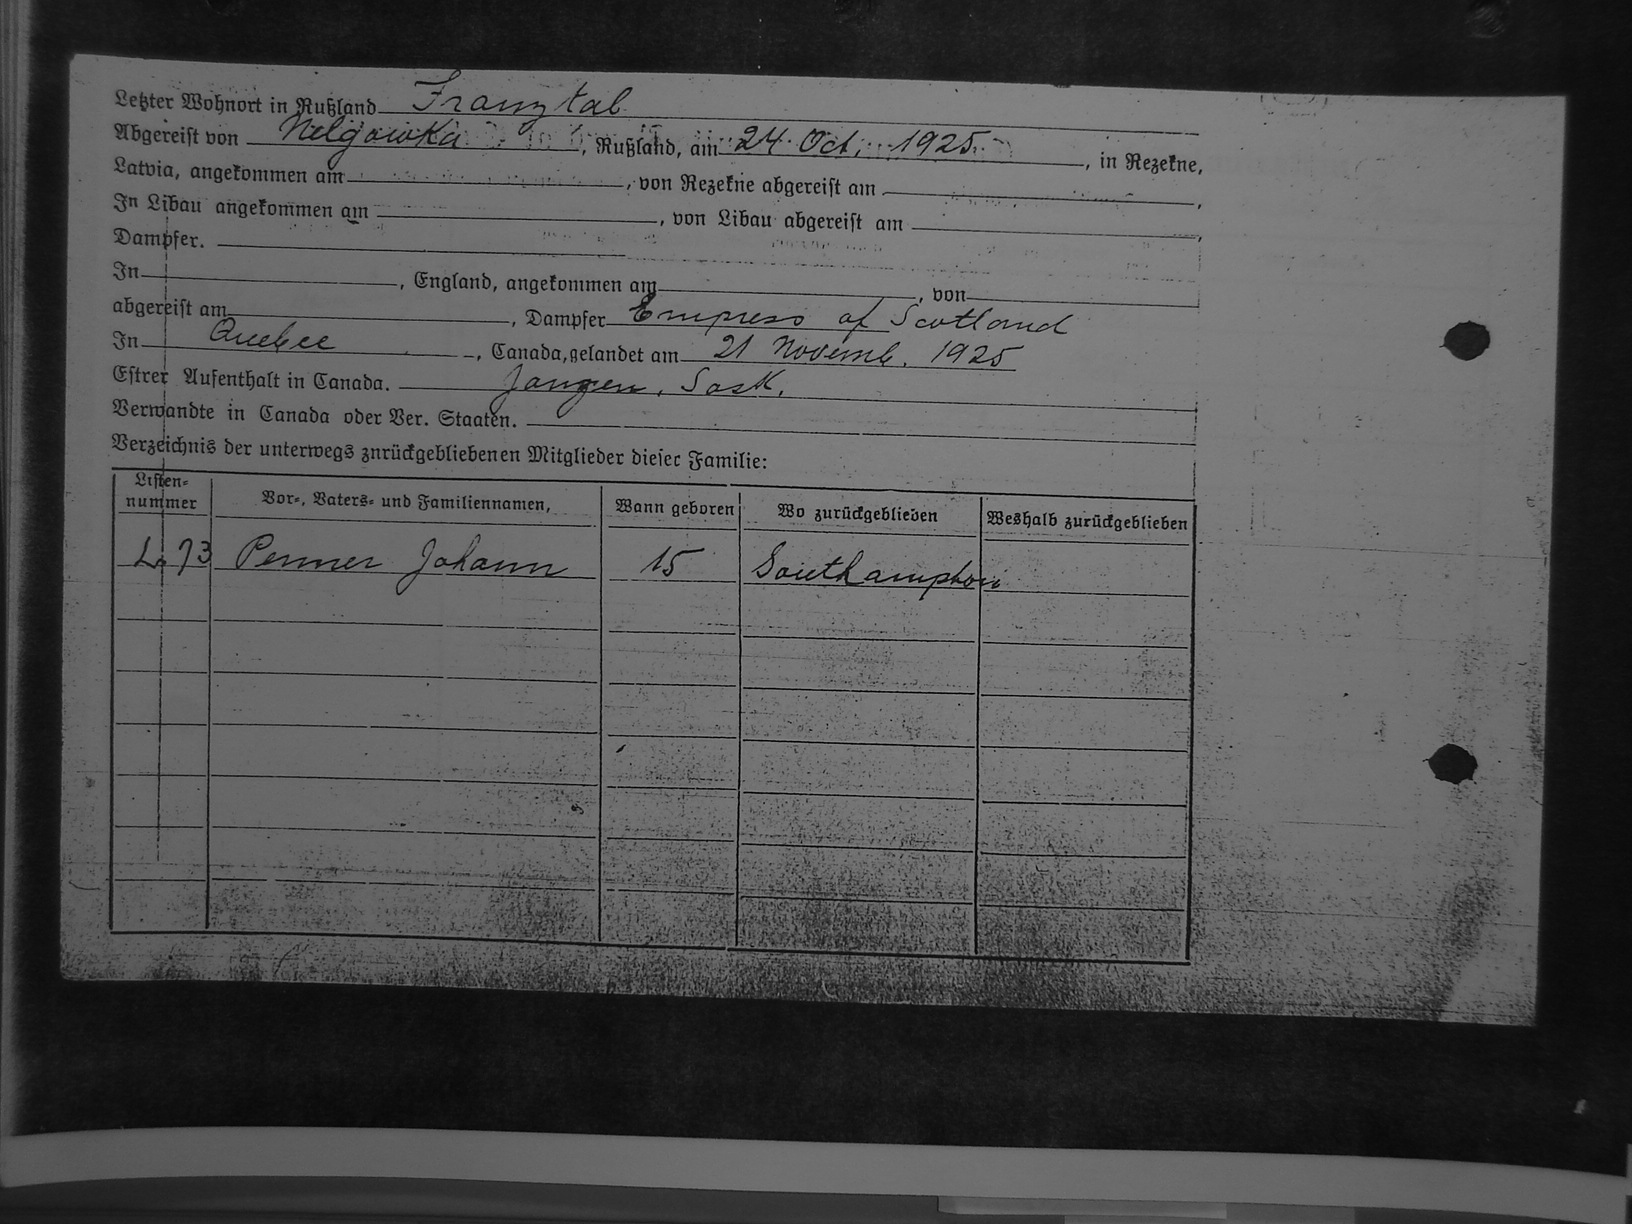 Letzter Wohnort in Rußland Franztal
Abgereist von Nelgowka, Rußland, am 24. Oct. 1925, in Rezekne,
Latvia, angekommen am , von Rezekne abgereist am ,
In Libau angekommen am , von Libau abgereist am ,
Dampfer.
In , England, angekommen am , von
abgereist am , Dampfer Empress of Scotland
In Quebec , Canada, gelandet am 21 Novemb. 1925
Estrer Aufenthalt in Canada. Jansen, Sask.
Verwandte in Canada oder Ver. Staaten.
Verzeichnis der unterwegs znrückgebliebenen Mitglieder dieser Familie:
Listen-
nummer Vor-, Vaters- und Familiennamen, Wann geboren Wo zurückgeblieben Weshalb zurückgeblieben
73 Penner Johann 15 Southampton